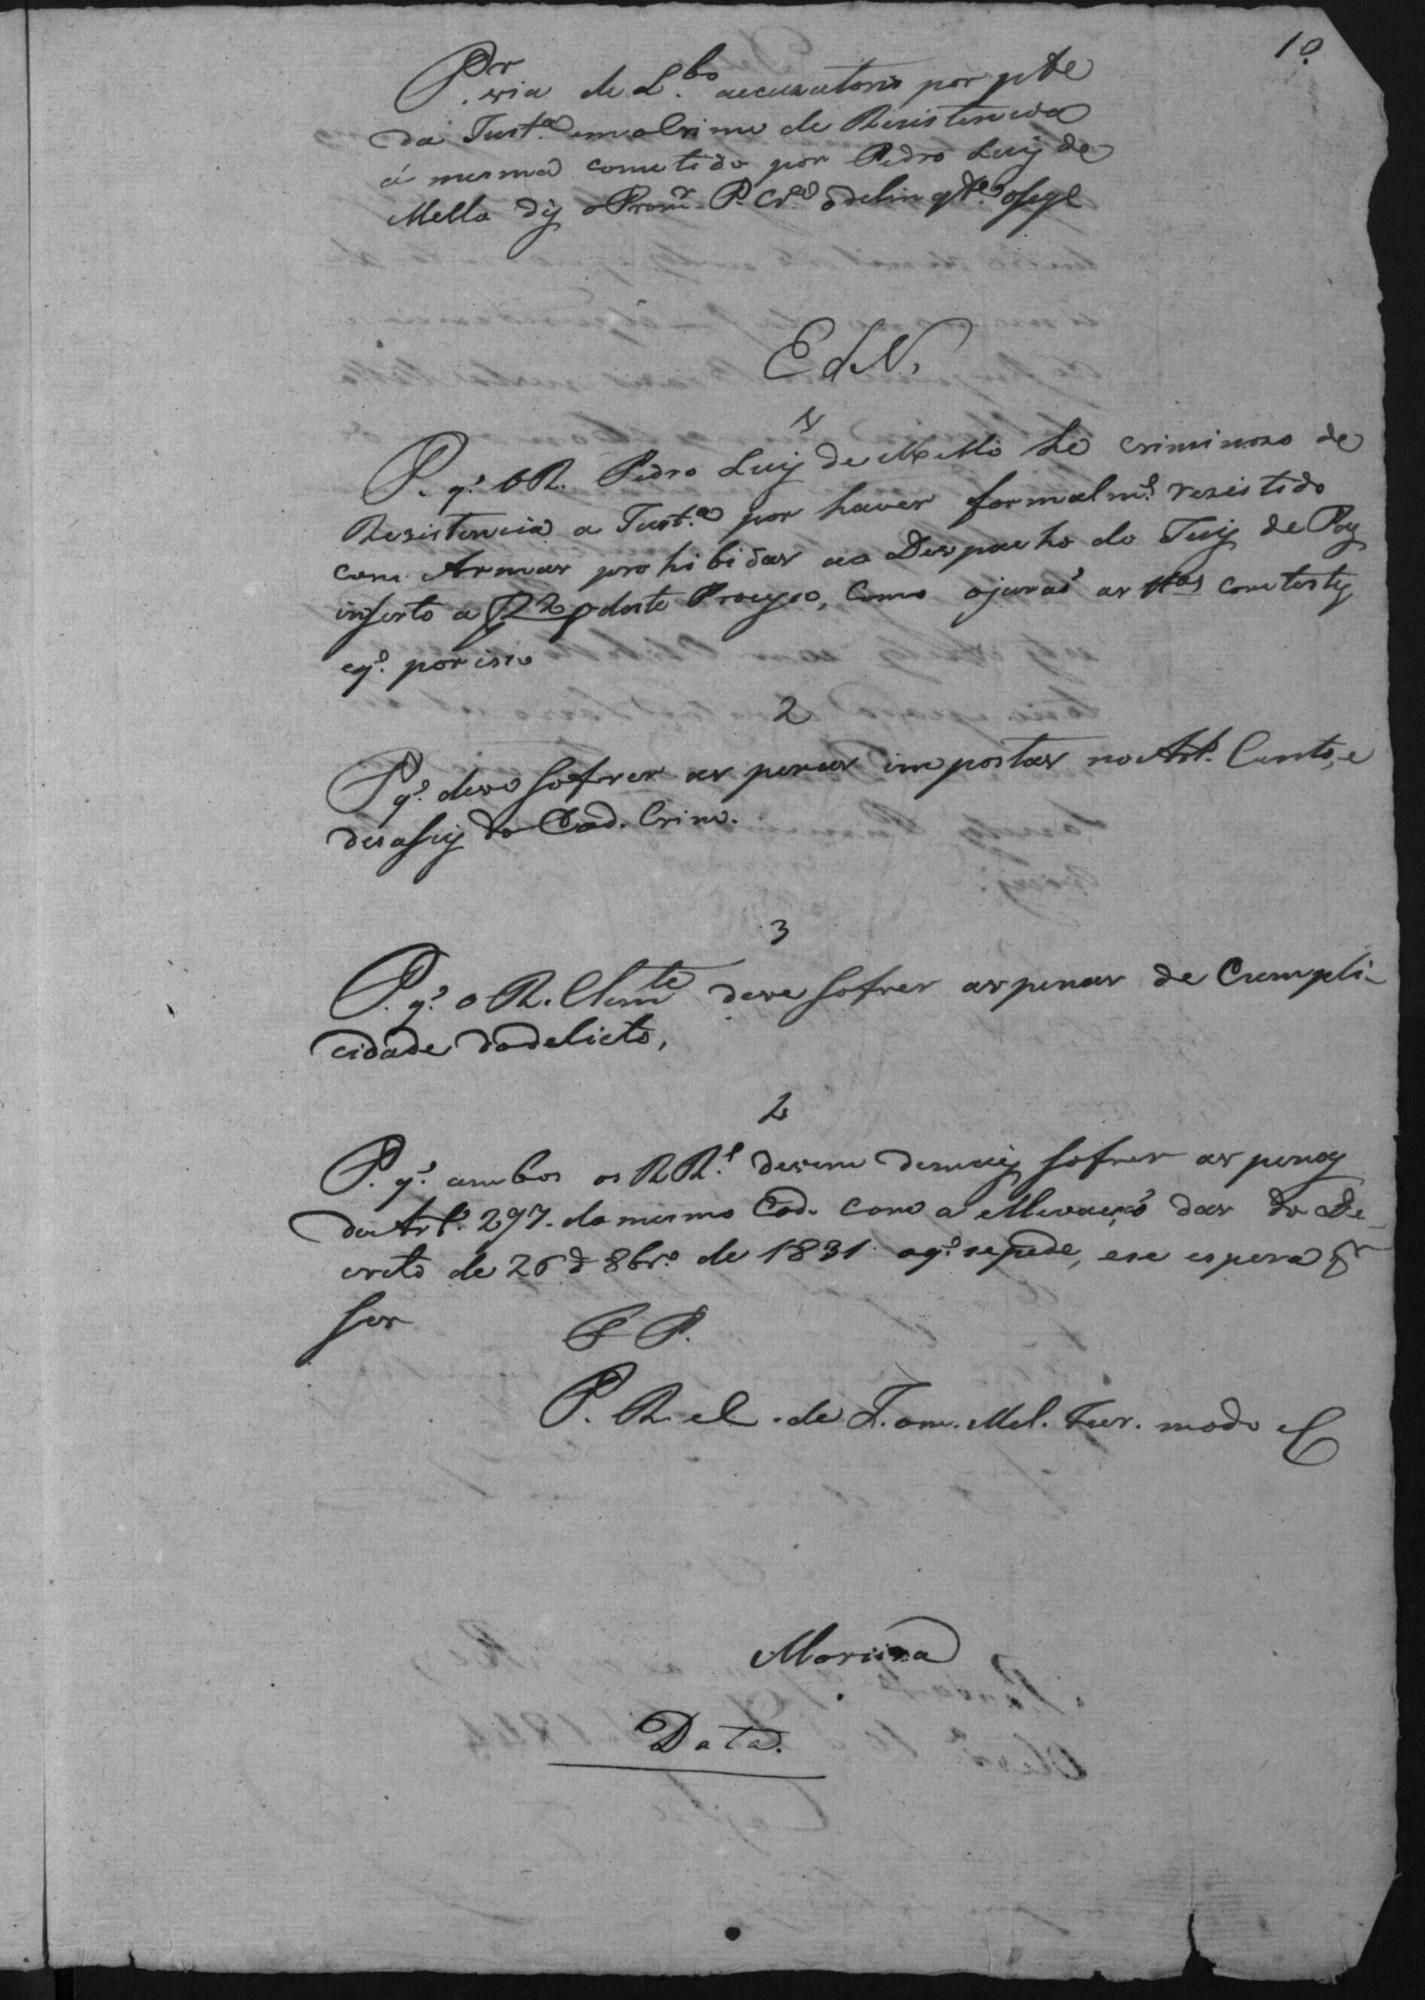 10
P.r via de L.bo accuzatorio por pte
da Just.a em o Crime de Rezistencia
á mesma cometido por Pedro Luiz de
Mello diz o Prom.r P. Cr.o o delinq.te o seg.e
E d N.
1
P. q.' O R. Pedro Luiz de Mello he criminozo de
Rezistencia a Just.a por haver formalm.e rezistido
com Armas prohibidas ao Despacho do Juiz de Paz
inserto a f 2 deste Processo, como ojuraó as tt.as contestes
eq.' por isso
2
P q.' deve sofrer as penas impostas no Art. Cento, e
desaseiz do Cod. Crim.
3
P. q.' o R. Clem.te deve sofrer as penas de Cumpli-
cidade do delicto,
4
P. q.' ambos os RR.s devem demais sofrer as penas
do Art.o 297. do mesmo Cod. com a ellevaçaó das do De-
creto de 26 d 8br.o de 1831. o q.' se pede, e se espera pr
ser
F P.
P. R. e C. de J. om. Mel. Jur. modo e C
Moreira
Data.